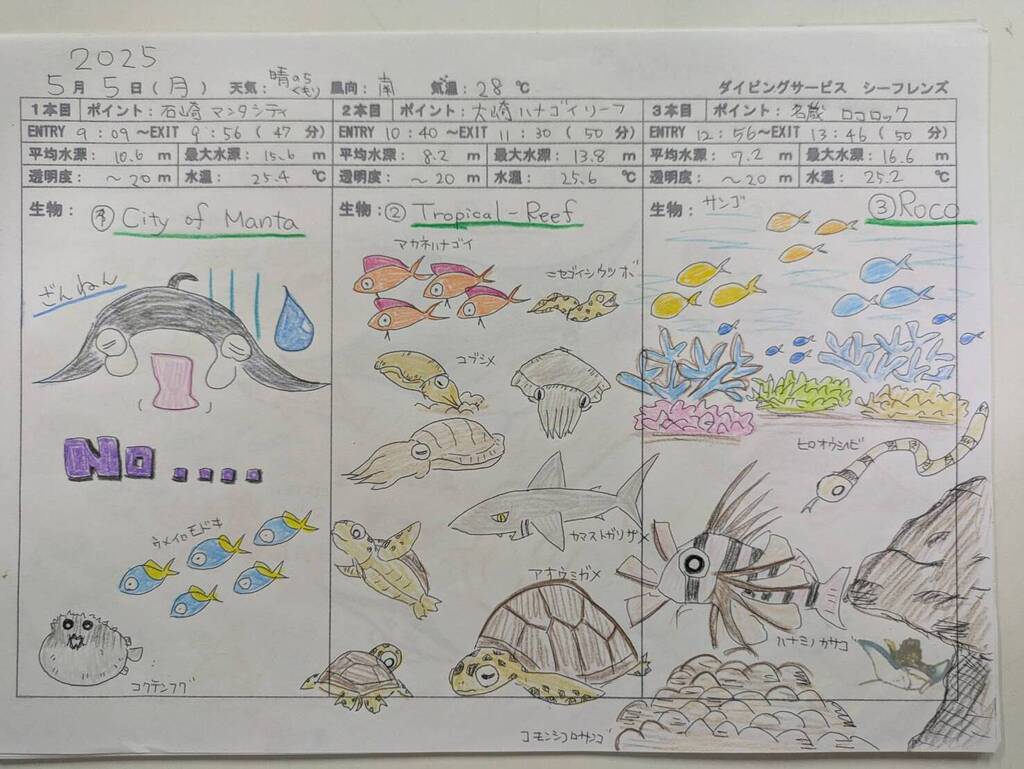 2025
5月 5日(月) 天気: 晴のちくもり 風向: 南 気温: 28 ℃ ダイビングサービス シーフレンズ
1本目 ポイント: 石崎 マンタシティ
ENTRY 9:09～EXIT 9:56 ( 47 分)
平均水深: 10.6 m 最大水深: 15.6 m
透明度: ～20 m 水温: 25.4 ℃
生物: ① City of Manta
ざんねん
No....
ウメイロモドキ
コクテンフグ
2本目 ポイント: 大崎 ハナゴイリーフ
ENTRY 10:40 ～EXIT 11:30 ( 50 分)
平均水深: 8.2 m 最大水深: 13.8 m
透明度: ～20 m 水温: 25.6 ℃
生物: ② Tropical-Reef
アカネハナゴイ
ニセゴイシウツボ
コブシメ
カマストガリザメ
アオウミガメ
3本目 ポイント: 名蔵 ロコロック
ENTRY 12:56～EXIT 13:46 (50 分)
平均水深: 9.2 m 最大水深: 16.6 m
透明度: ～20 m 水温: 25.2 ℃
生物: サンゴ ③Roco
ヒロオウミヘビ
ハナミノカサゴ
コモンシコロサンゴ